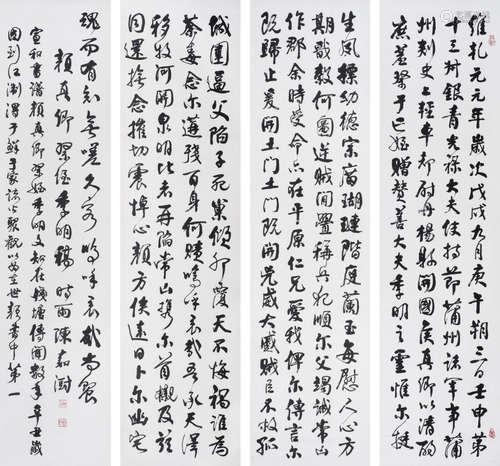 維乾元元年歲次戊戌九月庚午朔三日壬申第
十三叔銀青光祿大夫使持節蒲州諸軍事蒲
州刺史上輕車都尉丹楊縣開國侯真卿以清酌
庶羞祭于亡姪贈贊善大夫季明之靈惟爾挺
生夙標幼德宗廟瑚璉階庭蘭玉每慰人心方
期戩穀何圖逆賊間釁稱兵犯順爾父竭誠常山
作郡余時受命亦在平原仁兄愛我俾爾傳言爾
既歸止爰開土門土門既開兇威大蹙賊臣不救孤
城圍逼父陷子死巢傾卵覆天不悔禍誰為
荼毒念爾遘殘百身何贖嗚呼哀哉吾承天澤
移牧河關泉明比者再陷常山攜爾首櫬及茲
同還撫念摧切震悼心顏方俟遠日卜爾幽宅
魂而有知無嗟久客嗚呼哀哉尚饗
顏真卿祭侄季明稿 時雨陳嘉澍
宣和書譜顏真卿祭姪季明文知在錢塘傳聞數年辛丑歲
因到江浙得于鮮于家諸公聚觀以為在世顏書中第一